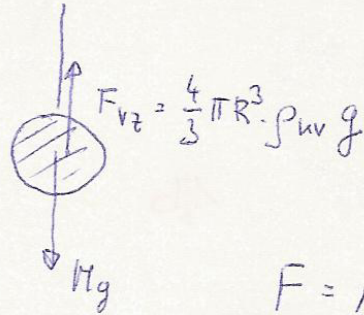 F_vz = 4/3 πR³·ρ_kv g
Mg
F =